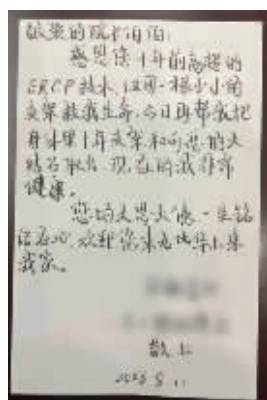 敬爱的院长伯伯:
感恩你十年前高超的
ERCP技术,让用一根小小的
支架救我生命,今日再帮我把
身体里十年支架和可恶的大
结石取出,现在的我非常
健康。
您的大恩大德,一生铭
记在心,欢迎您来九华山来
我家。
敬上
2023 8 11